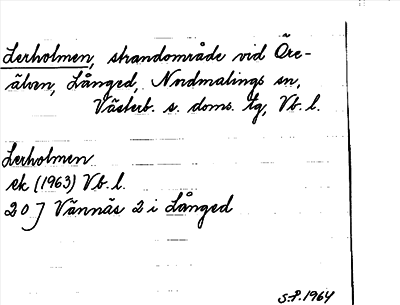 Lerholmen, strandområde vid Öre-
älven, Långed, Nordmalings sn,
Västerb. s. doms. tg, Vb. l.
Lerholmen
ek (1963) Vb. l.
20 J Vännäs 2 i Långed
S.P. 1964